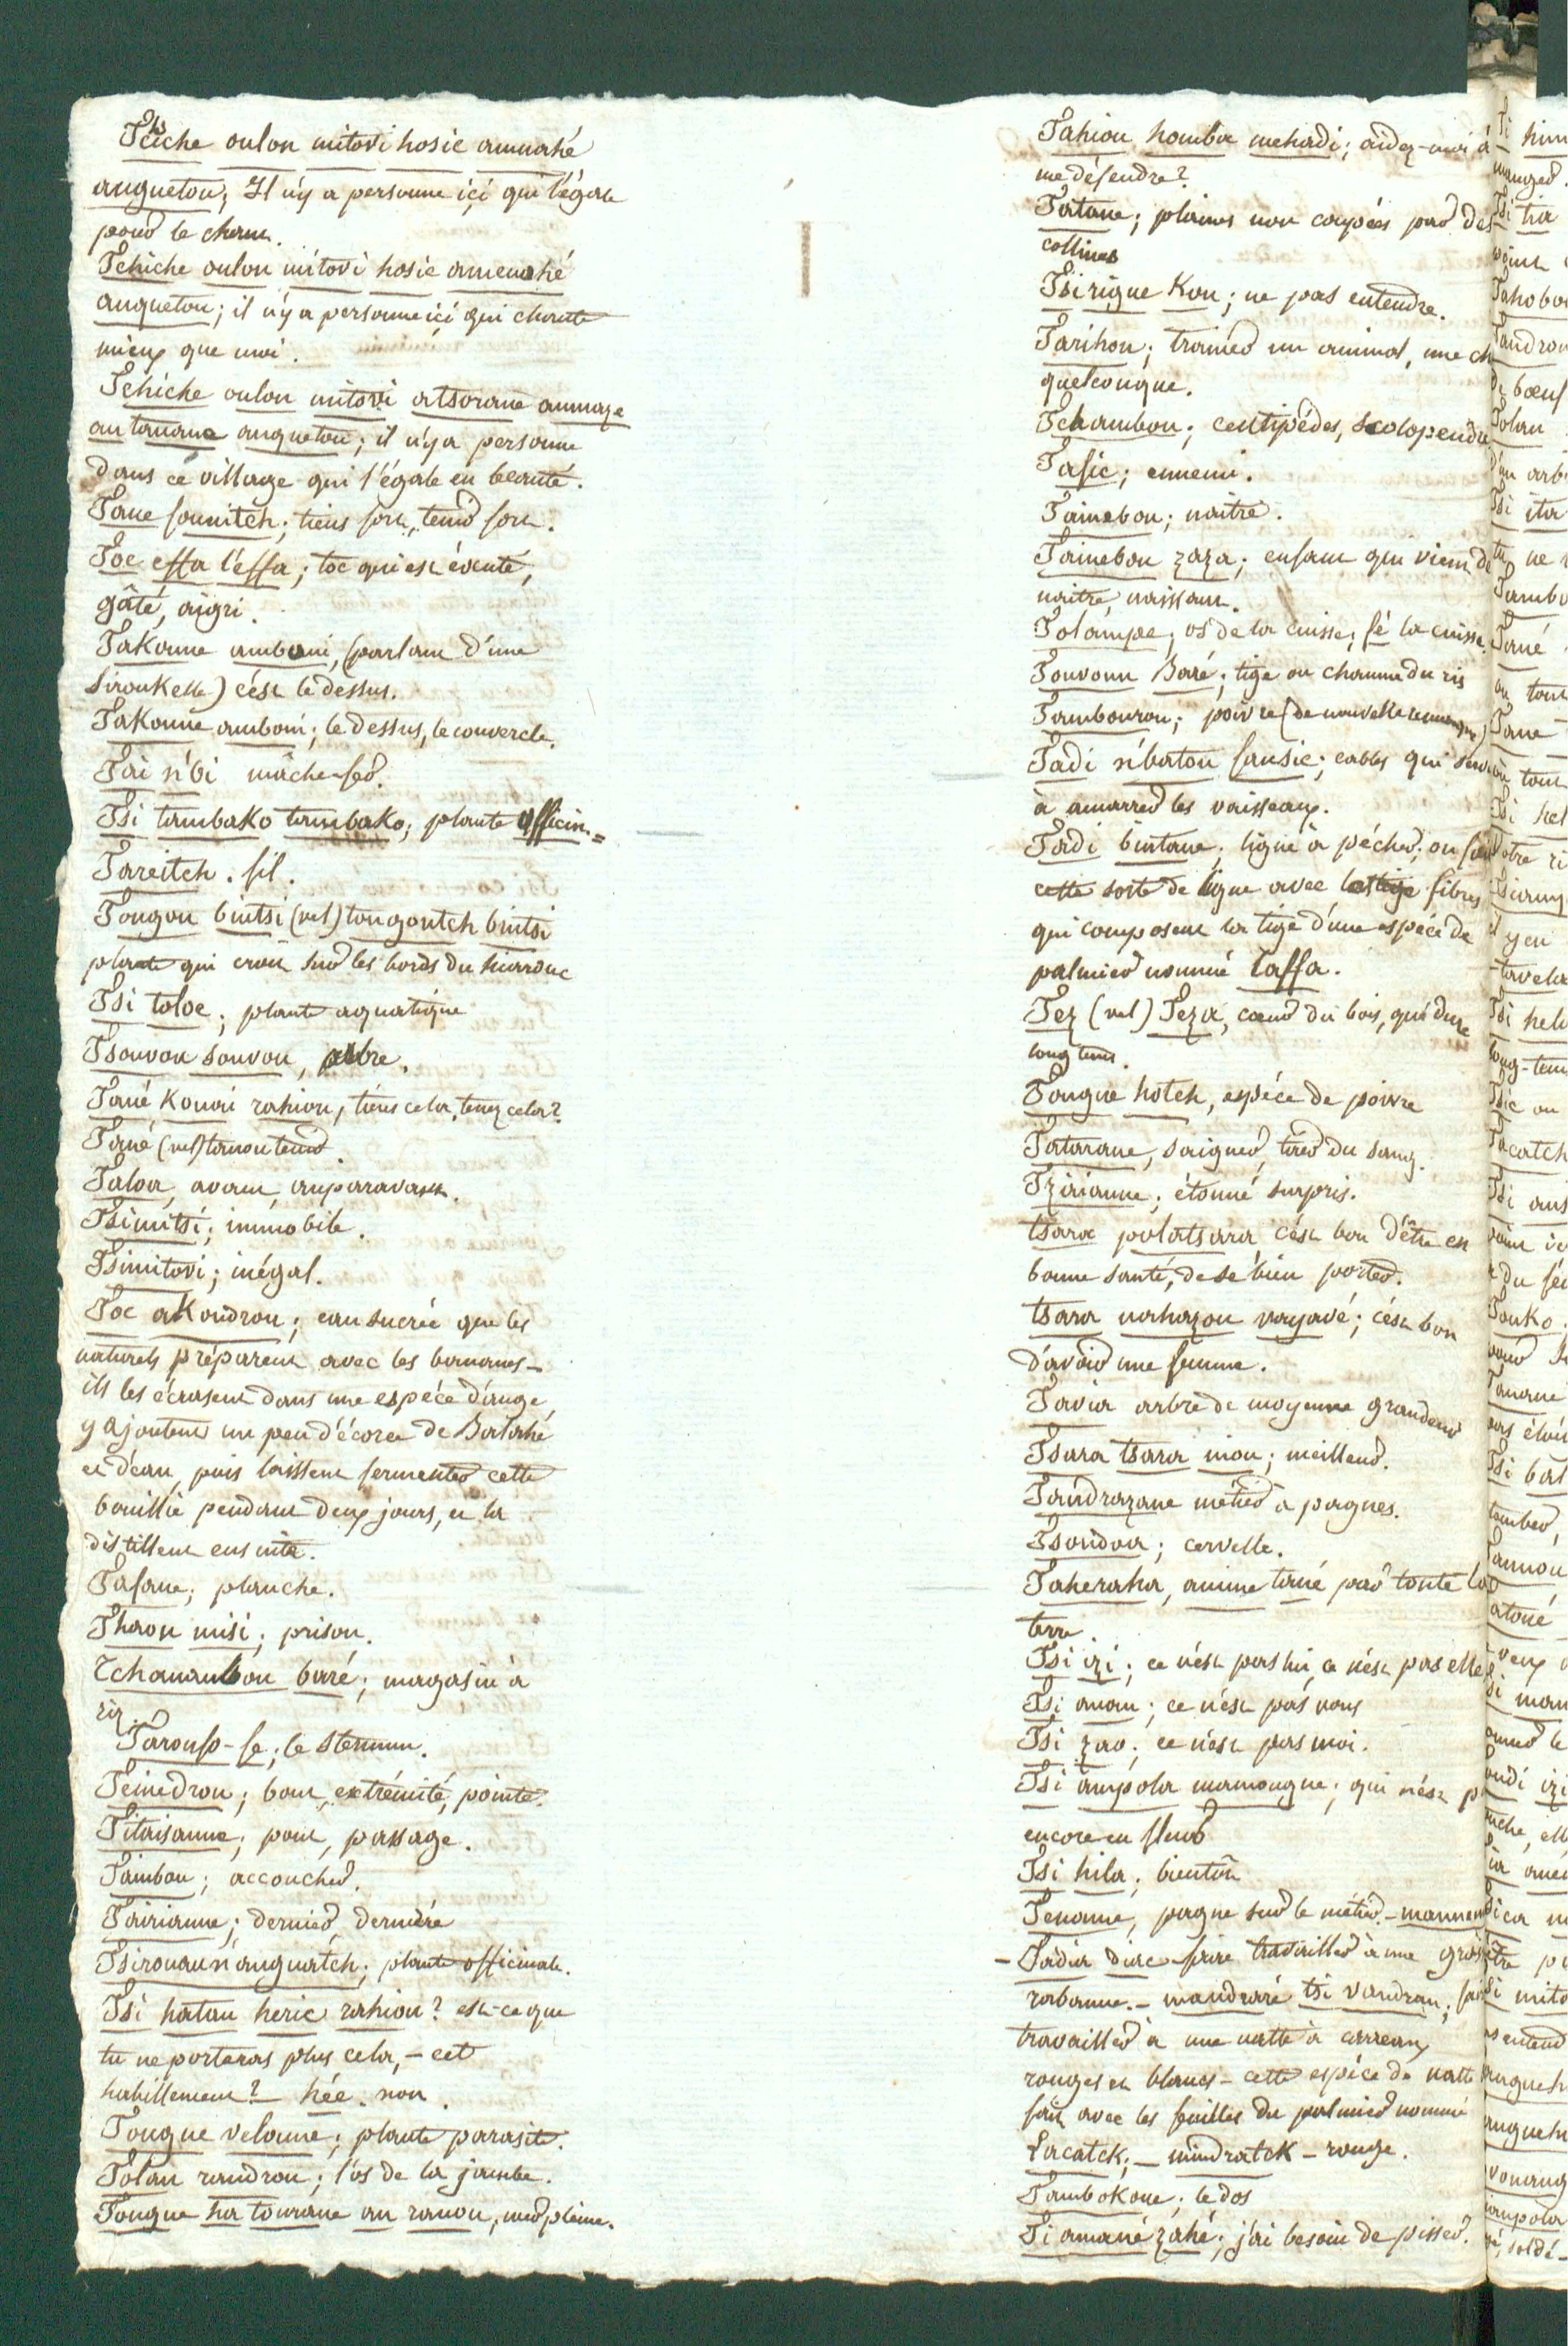 Tchiche oulon mitovi hosie ammahé
anguetou; Il n'y a personne içi qui l'égale
pour le chant.
Tchiche oulon mitovi hosie ammahé
anguetou; il n'y a personne ici qui chante
mieux que moi.
Tchiche oulon mitovi atsorane
an tanana anguetou; il n'y a personne
dans ce village qui l'égale en beauté.
Tane founitch; tiens fort, tenir fort.
Toc effa l'effa; toc qui est éventé,
gâté, aigri.
Takonne amboni, (parlant d'une
siroukelle) c'est le dessus.
Takonne amboni; le dessus, le couvercle.
Tai n'bi mâche-fer.
Tsi tambako tambako; plante officin.=
Tareitch. fil.
Tongou bintsi (vel) tongoutch bintsi
plante qui croit sur les bords du
Tsi toloe; plante aquatique
Tsouvou souvou, arbre.
Tané Kouai rahiou, tiens cela, tenez cela?
Tané (vel) tanon tenir.
Taloa, avant, auparavant.
Tsimitsi; immobile.
Tsimitovi; inégal.
Toc akondrou; eau sucrée que les
naturels préparent avec les bananes-
ils les écrasent dans une espéce d'auge,
y ajoutent un peu d'écorce de Batahé
et d'eau, puis laissent fermenter cette
bouillie pendant deux jours, et la
distillent ensuite.
Tafane; planche.
Thaou misi; prison.
Tchanambou baré; magasin à
riz.
Taroufo-fe; le sternum.
Teinedrou; bout, extrémité, pointe.
Titaisanne; pont, passage.
Taimbou; accoucher.
Tairianne; dernier, derniére
Tsirouaun'anguatch; plante officinale.
Tsi hatau heric rahiou? est-ce que
tu ne porteras plus cela, - cet
habillement? hée. non.
Tongue velonne; plante parasite.
Tolan randrou; l'os de la jambe.
Tongue ha tourane an ranou, mer pleine.
Tahiou homba mehadi; aidez-moi à
me défendre?
Tatane; plaines non coupées par des
collines
Tsi rigue Kou; ne pas entendre.
Tarihou; trainer un animal, une ch
quelconque.
Tchambou; centipédes, scolopendre
Tafic; ennemi.
Tainebou; naitre.
Tainebou zaza; enfant qui vient de
naitre, naissant.
Tolampe; os de la cuisse; fé la cuisse.
Touvoun Baré; tige ou chaume du ris
Tambourou; poivre (de nouvelle remarque)
Tadi n'batou fansic; cables qui servent
à amarrer les vaisseaux.
Tadi bintane; ligne à pécher; on fait
cette sorte de ligne avec les fibres
qui composent la tige d'une espéce de
palmier nommé Taffa.
Tez (vel) Teza, cœur du bois, qui dure
long tems.
Tongue hotch, espéce de poivre
Tatarane, saigner, tirer du sang.
Tzirianne; étonné surpris.
tsara polatsara c'est bon d'être en
bonne santé, de se bien porter.
tsara nahazou vayavé; c'est bon
d'avoir une femme.
Tavia arbre de moyenne grandeur
Tsara tsara inou; meilleur.
Taindrazane métier à pagnes.
Tsoudoa; cervelle.
Taheraha, anime tané par toute la
terre.
Tsi izi; ce n'est pas lui, ce n'est pas elle
Tsi anau; ce n'est pas vous
Tsi zao; ce n'est pas moi.
Tsi ampola mamougue; qui n'est p
encore en fleur
Tsi hila; bientôt
Tenonne, pagne sur le métier.
- Tadia diac faire travailler à une grosse
rabanne. - mandraré tsi vandran; fai
travailler à une natte à carreaux
rouges et blancs - cette espéce de natte
fait avec les feuilles du palmier nommé
Lacatck; - mindratck - rouge.
Tambokoue; le dos
Ti amané zahé; j'ai besoin de pisser.